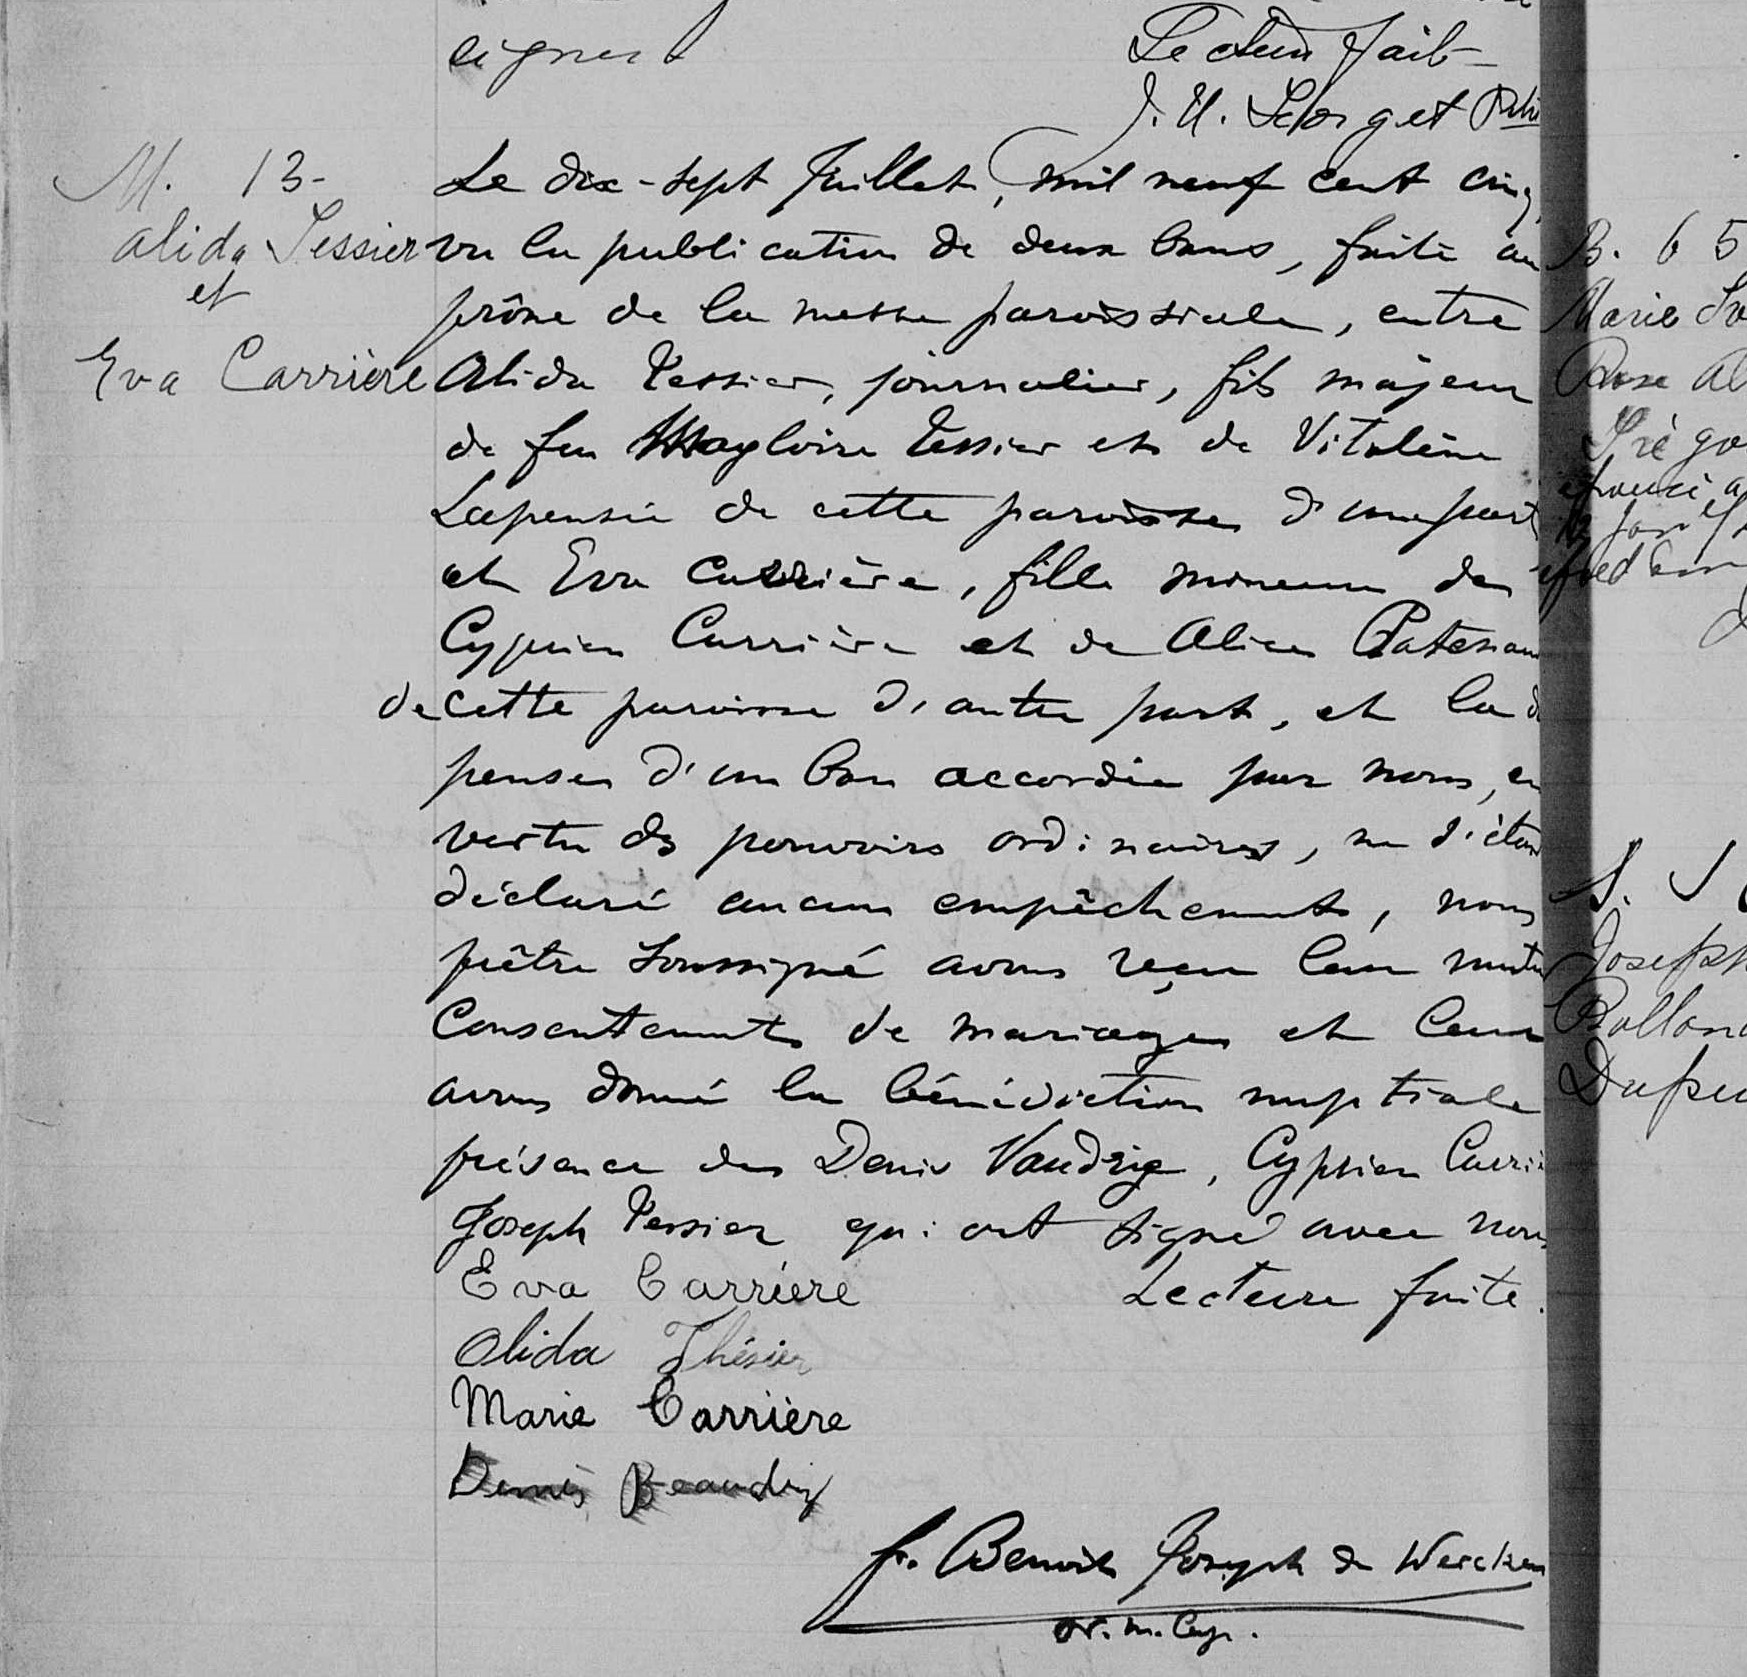 signés
Lecture fait
J. U. Forget Ptre
M. 13-
Alida Tessier
et
Eva Carrière
Le dix-sept Juillet, mil neuf cent cinq,
vu la publication de deux bans, faite au
prône de la messe paroissiale, entre
Alida Tessier, journalier, fils majeur
de feu Magloire Tessier et de Vitaline
Lapensée de cette paroisse d'une part
et Eva Carrière, fille mineure de
Cyprien Carrière et de Alice Patenau
de cette paroisse d'autre part, et la di
pense d'un ban accordée par nous, en
vertu des pouvoirs ordinaires, ne s'étan
déclaré aucun empêchement, nous
prêtre soussigné avons reçu leur mutu
consentement de mariage et leur
avons donné la bénédiction nuptiale
présence de Denis Vaudrie, Cyprien Carri
Joseph Tessier qui ont signé avec nous
Lecture faite.
Eva Carrière
Alida Thésier
Marie Carrière
Denis Beaudry
fr. Benoit Joseph de Wercken
or. m. Cap.
B. 65
Marie
Rose Al
Joseph
Rolland
Dupu